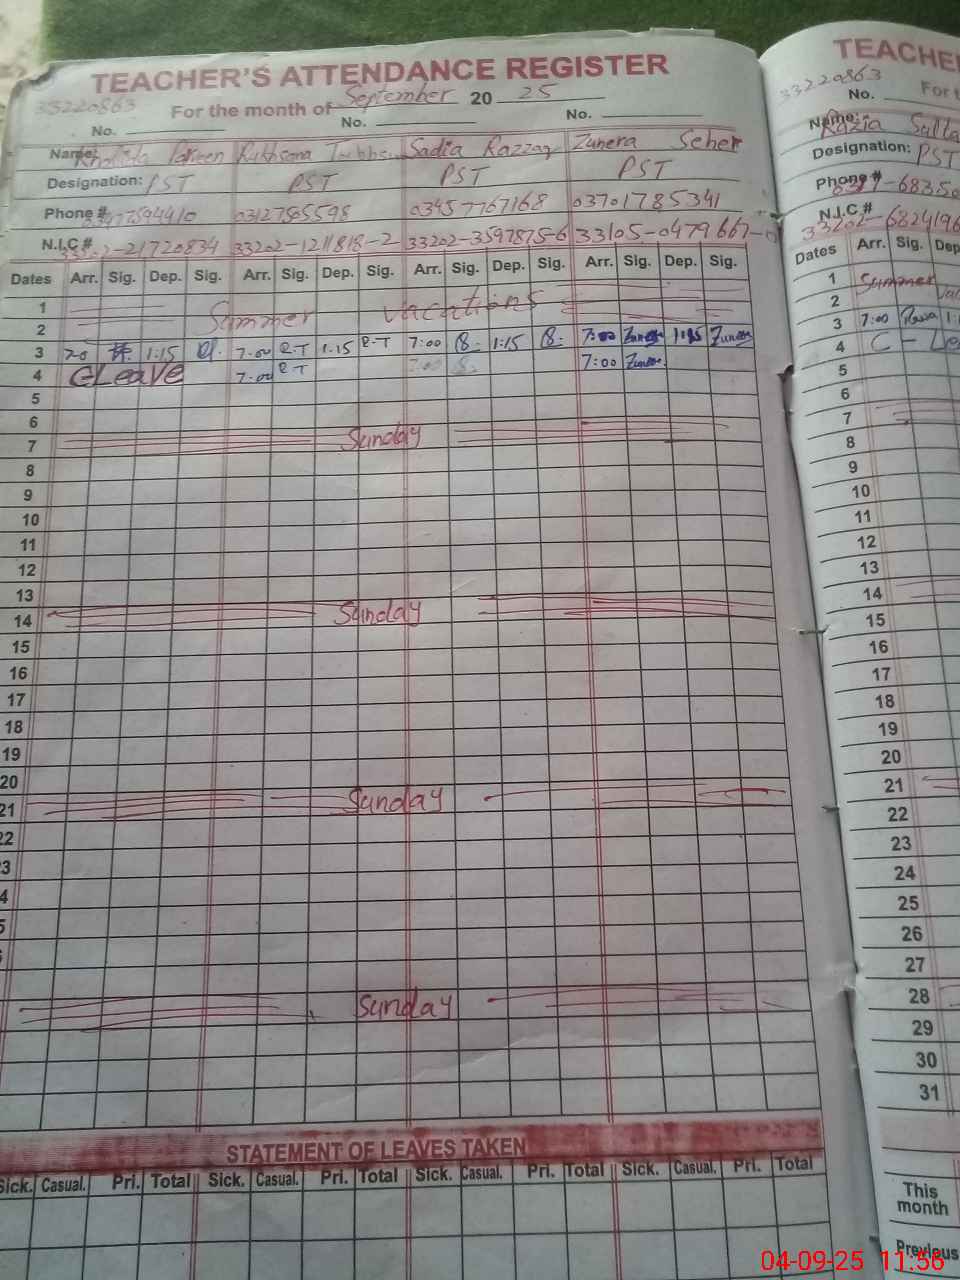 TEACHER'S ATTENDANCE REGISTER
33220863
For the month of September 20 25
No. No. No.
Name: Khalida Parveen Rukhsana Sadia Razzaq Zunera Seher
Designation: PST PST PST PST
Phone # 03127585598 03457767168 03701785341
N.I.C # 33202-1211818-2 33202-3597875-6 33105-0479667-0
Dates Arr. Sig. Dep. Sig. Arr. Sig. Dep. Sig. Arr. Sig. Dep. Sig. Arr. Sig. Dep. Sig.
1
2 Summer vacations
3 1:15 7:00 R-T 1:15 R-T 7:00 1:15 7:00 Zunera 1:15 Zunera
4 C Leave 7:00 R-T 7:00 S. 7:00 Zunera
5
6
7 Sunday
8
9
10
11
12
13
14 Sunday
15
16
17
18
19
20
21 Sunday
22
23
Sunday
STATEMENT OF LEAVES TAKEN
Sick. Casual. Pri. Total Sick. Casual. Pri. Total Sick. Casual. Pri. Total Sick. Casual. Pri. Total
TEACHE
33220863
No. For t
Name: Razia Sulta
Designation: PST
Phone #
N.I.C.# 33202-6824196
Dates Arr. Sig. Dep
1 Summer
2
3 7:00
4 C - Le
5
6
7
8
9
10
11
12
13
14
15
16
17
18
19
20
21
22
23
24
25
26
27
28
29
30
31
This
month
Previous
04-09-25 11:56